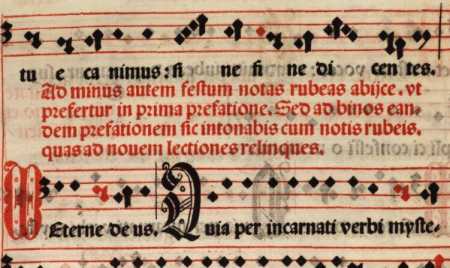 tu e ca nimus: si ne fi ne di cen tes.
Ad minus autem festum notas rubeas abijce. vt
prefertur in prima prefatione. Sed ad binos ean
dem prefationem sic intonabis cum notis rubeis.
quas ad nouem lectiones relinques.
Eterne deus. Quia per incarnati verbi myste-